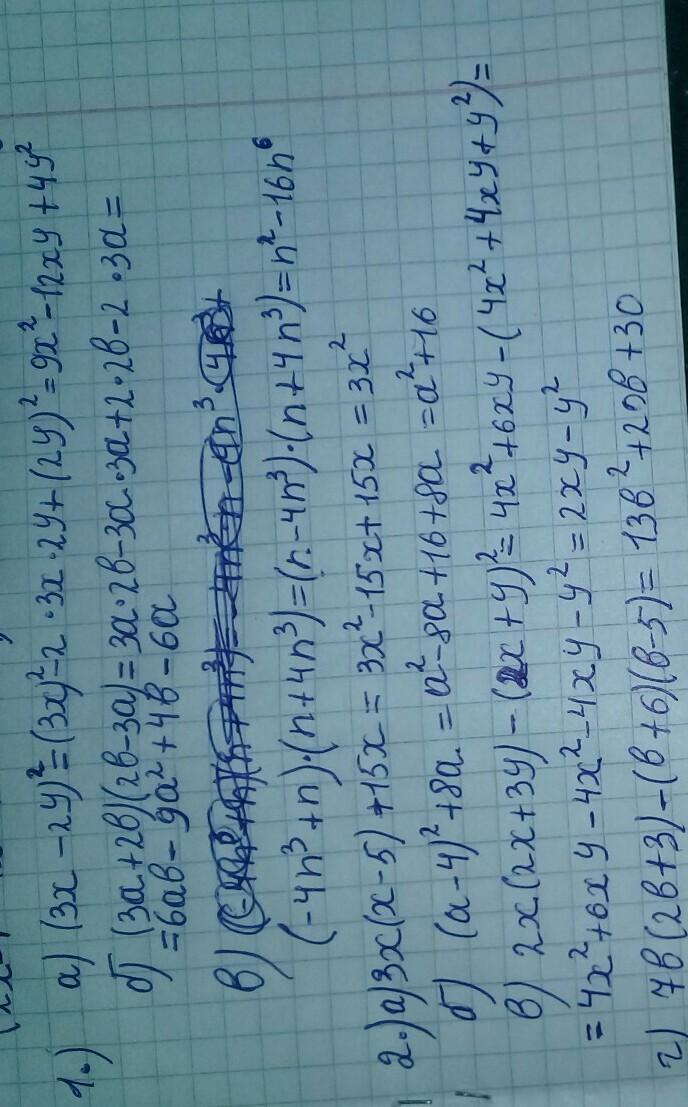 1.) а) (3x - 2y)² = (3x)² - 2·3x·2y + (2y)² = 9x² - 12xy + 4y²
б) (3a + 2b)(2b - 3a) = 3a·2b - 3a·3a + 2·2b - 2·3a =
= 6ab - 9a² + 4b - 6a
в)
(-4n³ + n)·(n + 4n³) = (n - 4n³)·(n + 4n³) = n² - 16n⁶
2.) а) 3x(x - 5) + 15x = 3x² - 15x + 15x = 3x²
б) (a - 4)² + 8a = a² - 8a + 16 + 8a = a² + 16
в) 2x(2x + 3y) - (2x + y)² = 4x² + 6xy - (4x² + 4xy + y²) =
= 4x² + 6xy - 4x² - 4xy - y² = 2xy - y²
г) 7b(2b + 3) - (b + 6)(b - 5) = 13b² + 20b + 30